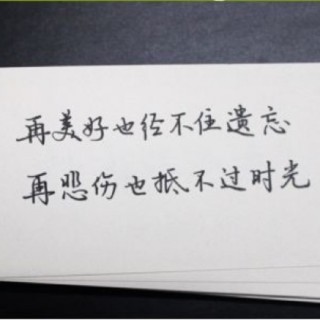 再美好也经不住遗忘
再悲伤也抵不过时光